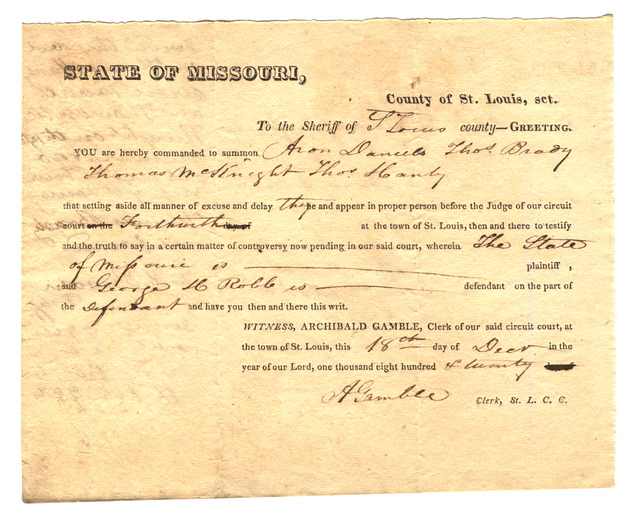 STATE OF MISSOURI,
County of St. Louis, sct.
To the Sheriff of St Louis county—GREETING.
YOU are hereby commanded to summon Aron Daniels Thos Brady
Thomas McKnight Thos Hanly
that setting aside all manner of excuse and delay they be and appear in proper person before the Judge of our circuit
court on the Forthwith day of at the town of St. Louis, then and there to testify
and the truth to say in a certain matter of controversy now pending in our said court, wherein The State
of Missouri is plaintiff,
and George H Robb is defendant on the part of
the Defendant and have you then and there this writ.
WITNESS, ARCHIBALD GAMBLE, Clerk of our said circuit court, at
the town of St. Louis, this 18th day of Decr in the
year of our Lord, one thousand eight hundred & twenty
A Gamble Clerk, St. L. C. C.